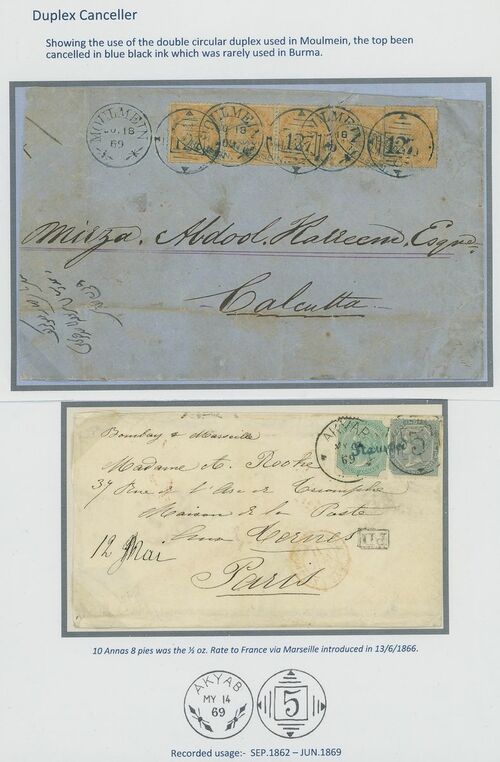 Duplex Canceller
Showing the use of the double circular duplex used in Moulmein, the top been
cancelled in blue black ink which was rarely used in Burma.
MOULMEIN
JU. 18
69
127
MOULMEIN
JU. 18
69
127
18
127
Mirza. Abdool. Karreem. Esqre.
Calcutta
Bombay & Marseille
AKYAB
MY
69
5
Madame A. Roche
37 Rue de l'Arc de Triomphe
Maison de la Poste
Ternes
P.D.
12 Mai
Paris
10 Annas 8 pies was the ½ oz. Rate to France via Marseille introduced in 13/6/1866.
AKYAB
MY 14
69
5
Recorded usage:- SEP.1862 – JUN.1869